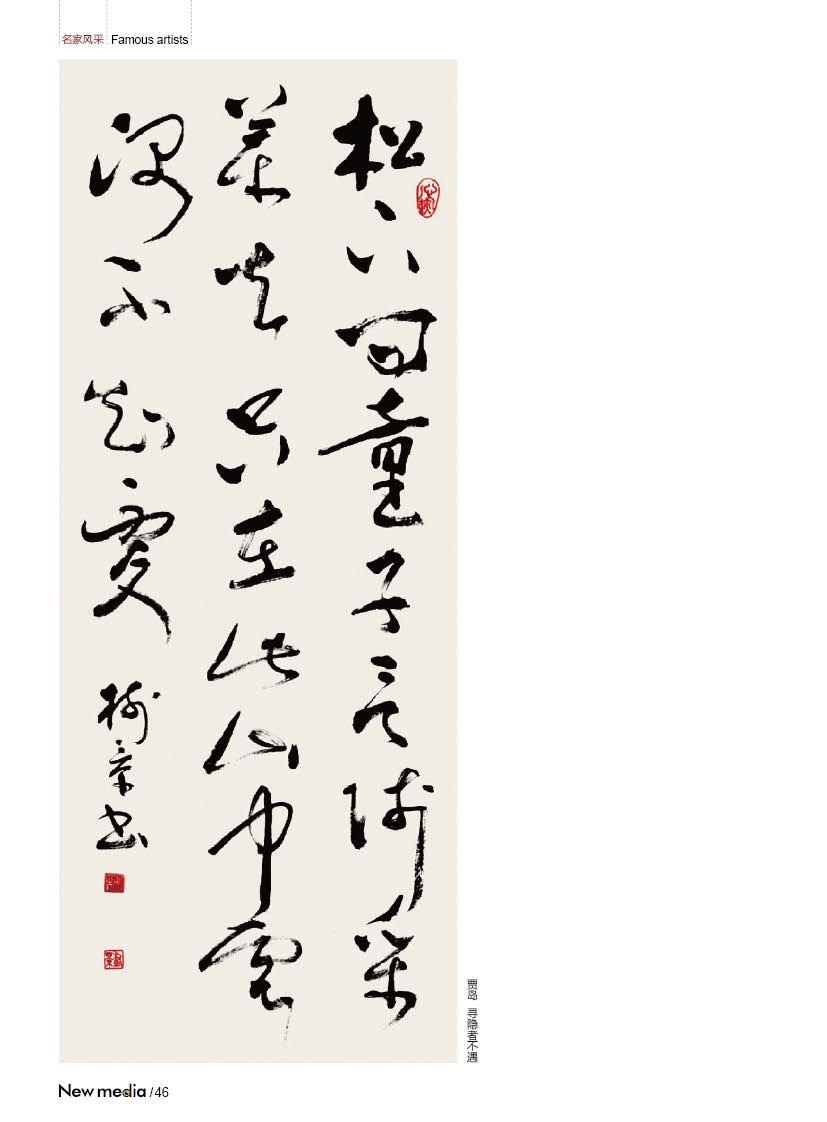 名家风采 Famous artists
松下問童子言師采
藥去只在此山中雲
深不知處
樹章書
贾岛 寻隐者不遇
New media /46